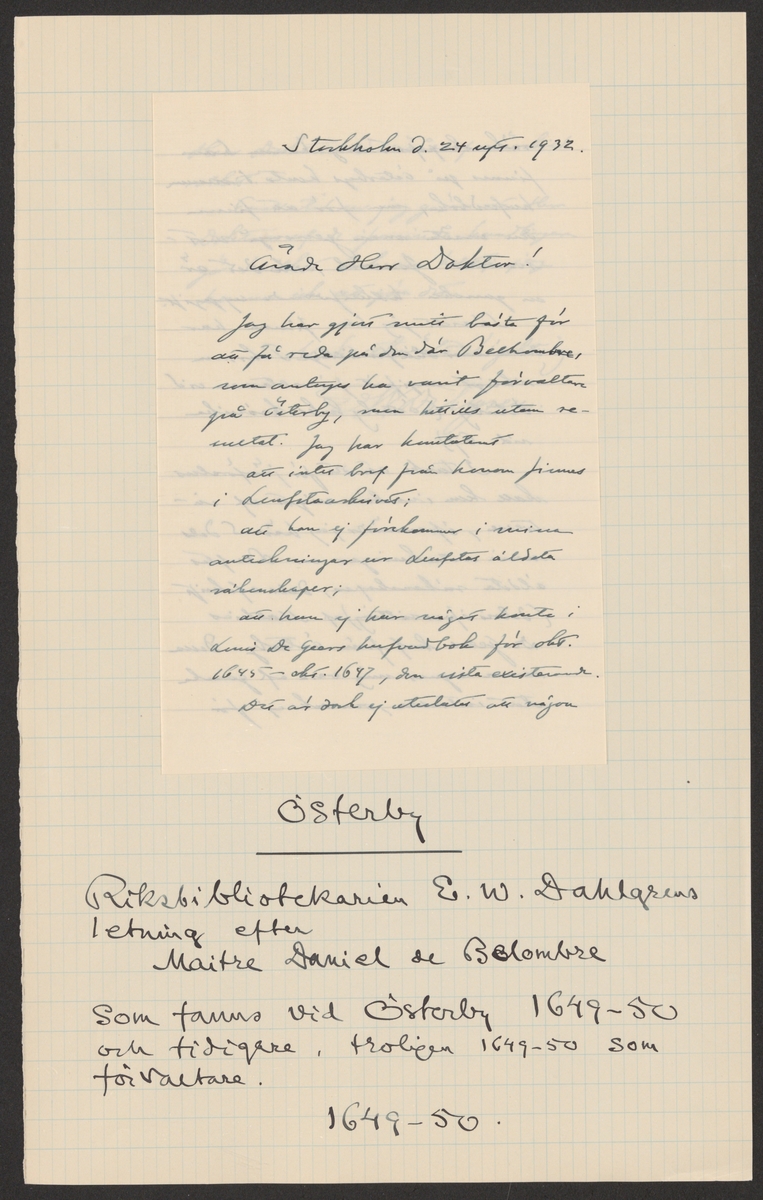 Stockholm d. 24 sept. 1932.
Ärade Herr Doktor!
Jag har gjort mitt bästa för
att få reda på den där Belhombre,
som antages ha varit förvaltare
på Österby, men hittills utan re-
sultat. Jag har konstaterat
att intet bref från honom finnes
i Leufstaarkivet;
att han ej förekommer i mina
anteckningar ur Leufstas äldsta
räkenskaper;
att han ej har något konto i
Louis De Geers hufvudbok för okt.
1645 – okt. 1647, den sista existerande.
Det är dock ej uteslutet att någon
Österby
Riksbibliotekarien E. W. Dahlgrens
letning efter
Maitre Daniel de Belombre
Som fanns vid Österby 1649-50
och tidigare, troligen 1649-50 som
förvaltare.
1649-50.